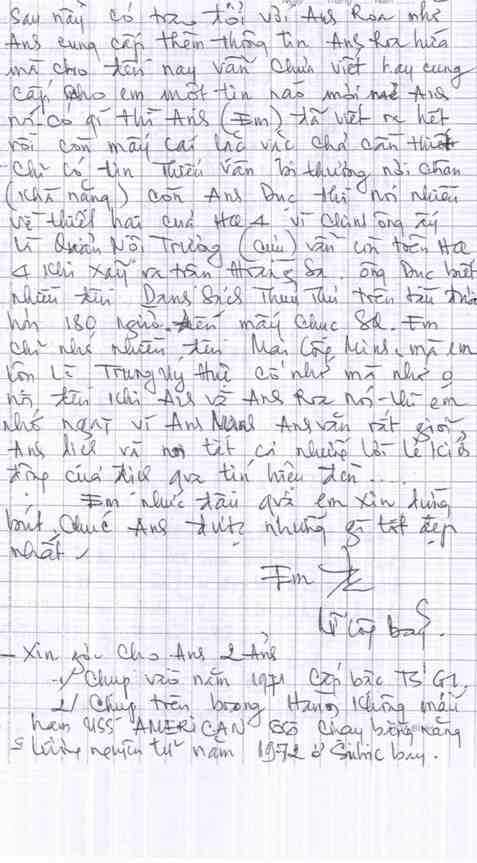 Sau này có trao đổi với Anh Hoa nhờ
Anh cung cấp thêm thông tin Anh Hoa hứa
mà cho đến nay vẫn chưa viết hay cung
cấp cho em một tin nào mới Anh
nói có gì thì Anh (Em) đã viết ra hết
rồi còn mấy cái lặt vặt chả cần thiết
Chỉ có tin Thiếu Văn bị thương nơi chân
(khả năng) còn Anh Duc thì nói nhiều
về thiệt hại của HQ 4 vì chính ông ấy
là Quản Nội Trưởng (cựu) vẫn còn trên HQ
4 khi xảy ra trận Hoàng Sa. Ông Duc biết
nhiều tên Danh Sách Thủy Thủ trên tàu
hơn 180 người đến mấy chục SQ. Em
chỉ nhớ nhiều tên Mai Công Minh, mà em
Trung úy Huệ cố nhớ mà nhớ o
nổi tên khi Anh và Anh Hoa nói thì em
nhớ ngay vì Anh Anh văn rất giỏi,
Anh dịch và nói tất cả những lời lẽ
động của địch qua tín hiệu đèn ....
Em nhức đầu quá em xin dừng
bút. Chúc Anh được những gì tốt đẹp
nhất.
Em
Lữ Công Bảy.
- Xin gởi cho Anh 2 Ảnh
1/ Chụp vào năm 1971 Cấp bậc TS G1.
2/ Chụp trên boong Hàng không mẫu
hạm USS AMERICAN 66 chạy bằng năng
lượng nguyên tử năm 1972 ở Subic bay.